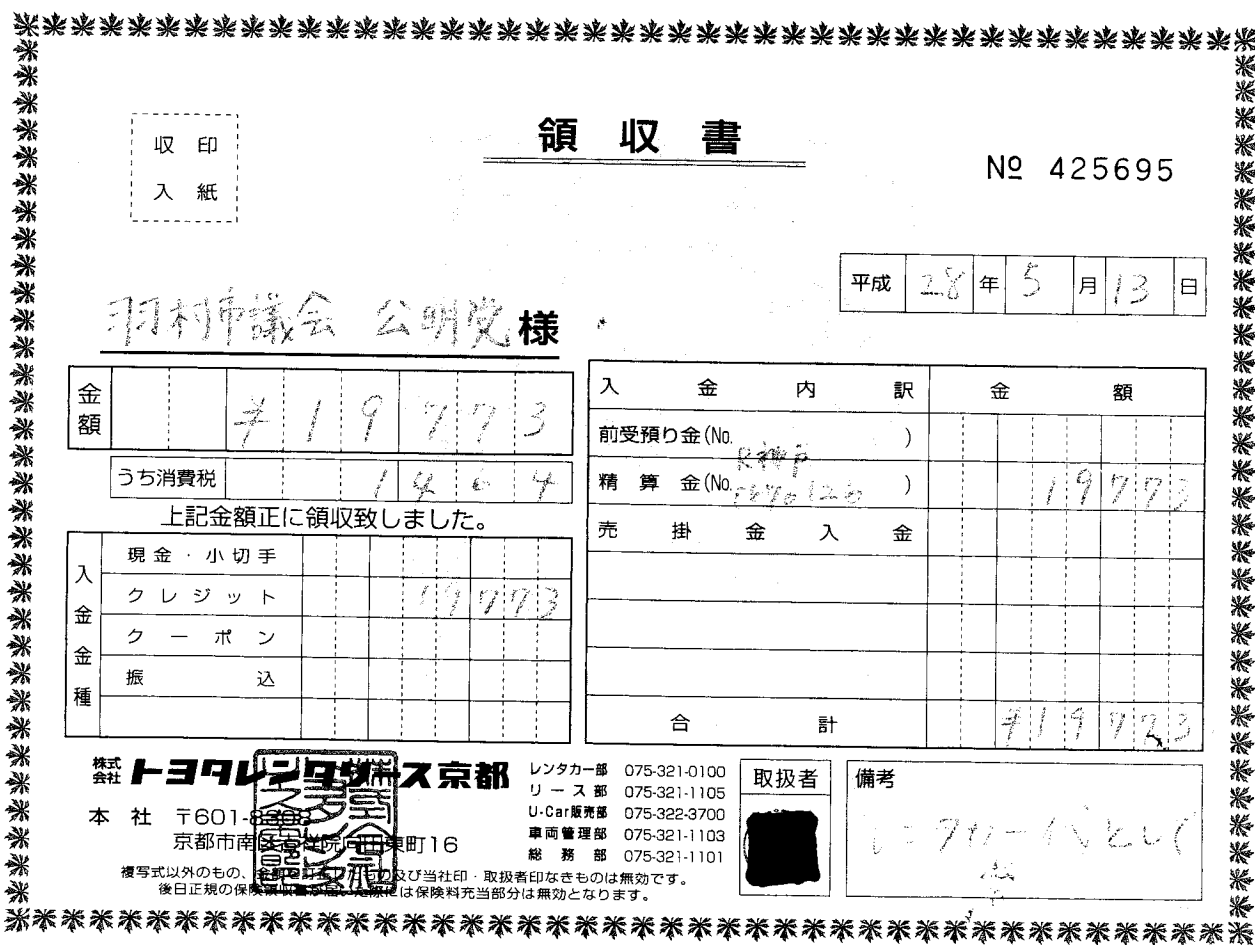 収 印
入 紙
領 収 書
№ 425695
平成 28 年 5 月 13 日
羽村市議会 公明党 様
金額 ¥19773
うち消費税 1464
上記金額正に領収致しました。
入金金種
現金・小切手
クレジット 19773
クーポン
振込
入金内訳 金額
前受預り金(No. )
精算金(No. ) 19773
売掛金入金
合計 ¥19773
株式会社 トヨタレンタリース京都
本社 〒601-8308
京都市南区吉祥院向田東町16
レンタカー部 075-321-0100
リース部 075-321-1105
U-Car販売部 075-322-3700
車両管理部 075-321-1103
総務部 075-321-1101
取扱者
備考
レンタカー代として
複写式以外のもの、金額を訂正したもの及び当社印・取扱者印なきものは無効です。
後日正規の保険領収書が届いた際には保険料充当部分は無効となります。